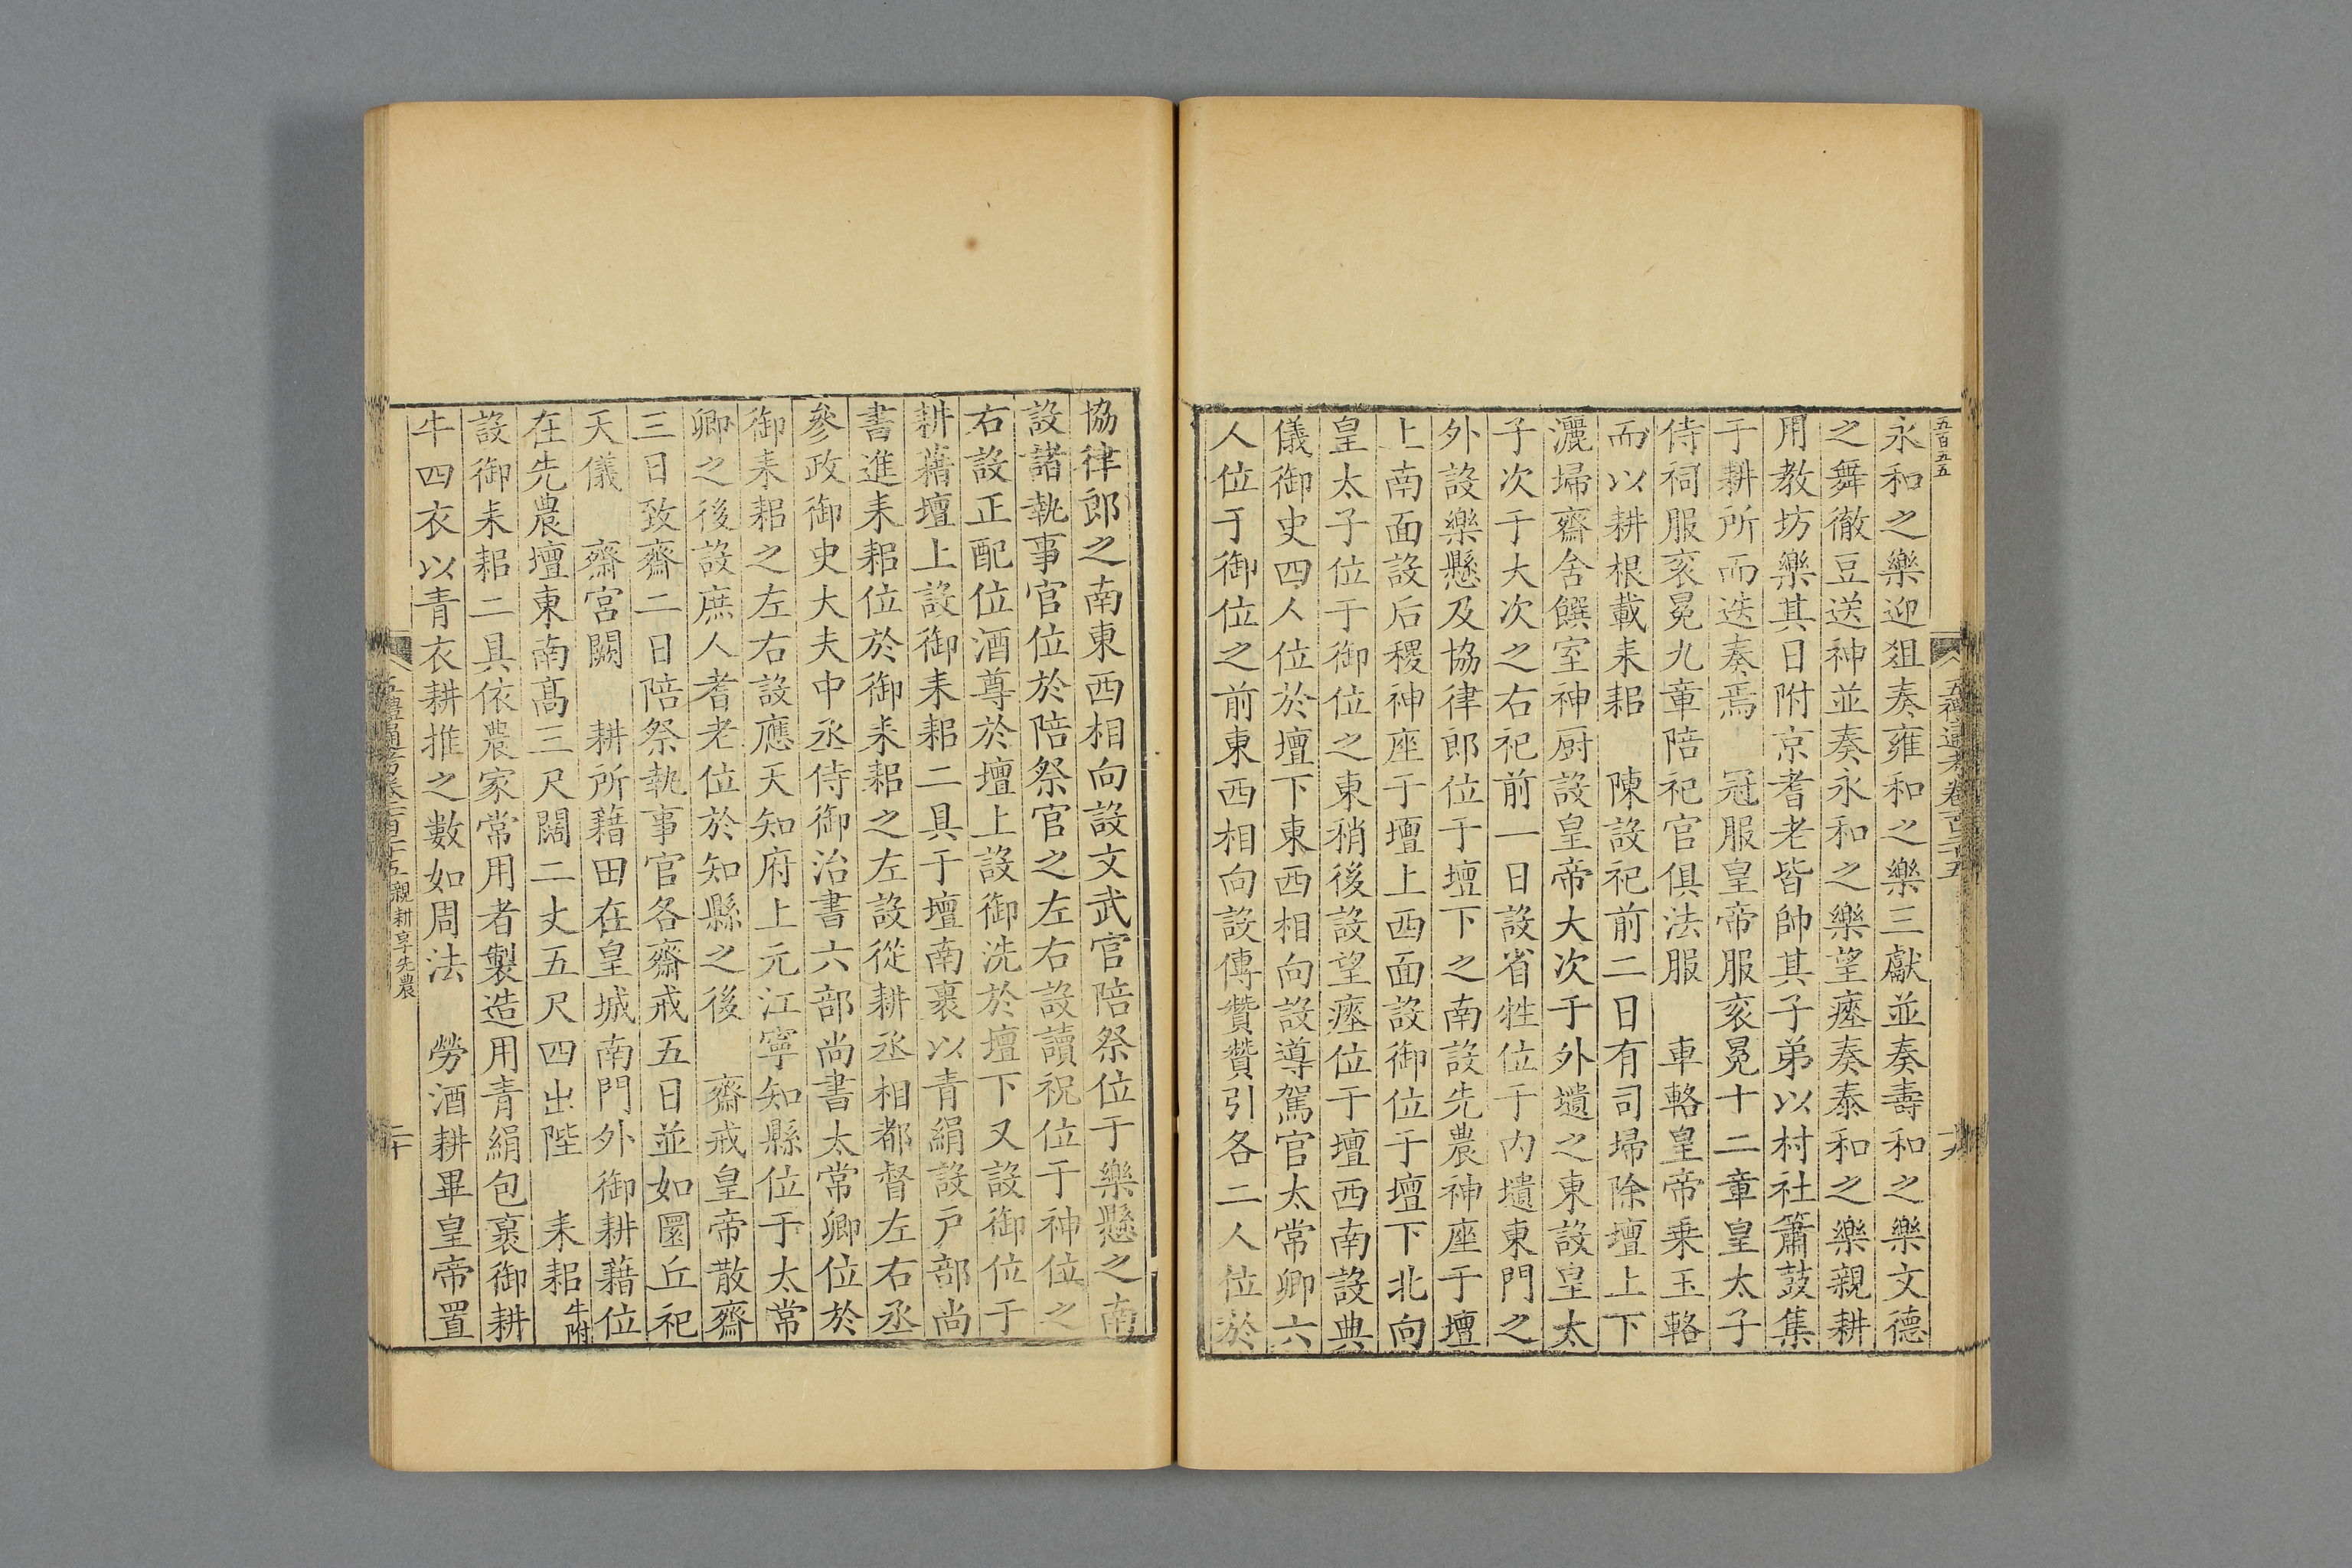 五百五五
永和之樂迎俎奏雍和之樂三獻並奏壽和之樂文德
之舞徹豆送神並奏永和之樂望瘞奏泰和之樂親耕
用教坊樂其日附京耆老皆帥其子弟以村社簫鼓集
于耕所而迭奏焉　冠服皇帝服衮冕十二章皇太子
侍祠服衮冕九章陪祀官俱法服　車輅皇帝乗玉輅
而以耕根載耒耜　陳設祀前二日有司掃除壇上下
灑掃齋舍饌室神厨設皇帝大次于外壝之東設皇太
子次于大次之右祀前一日設省牲位于内壝東門之
外設樂懸及協律郎位于壇下之南設先農神座于壇
上南面設后稷神座于壇上西面設御位于壇下北向
皇太子位于御位之東稍後設望瘞位于壇西南設典
儀御史四人位於壇下東西相向設導駕官太常卿六
人位于御位之前東西相向設傳贊贊引各二人位於
協律郎之南東西相向設文武官陪祭位于樂懸之南
設諸執事官位於陪祭官之左右設讀祝位于神位之
右設正配位酒尊於壇上設御洗於壇下又設御位于
耕藉壇上設御耒耜二具于壇南裹以青絹設戸部尚
書進耒耜位於御耒耜之左設從耕丞相都督左右丞
參政御史大夫中丞侍御治書六部尚書太常卿位於
御耒耜之左右設應天知府上元江寧知縣位于太常
卿之後設庶人耆老位於知縣之後　齋戒皇帝散齋
三日致齋二日陪祭執事官各齋戒五日並如圜丘祀
天儀　齋宮闕　耕所藉田在皇城南門外御耕藉位
在先農壇東南髙三尺闊二丈五尺四出陛　耒耜牛附
設御耒耜二具依農家常用者製造用青絹包裹御耕
牛四衣以青衣耕推之數如周法　勞酒耕畢皇帝置
親耕享先農
二十